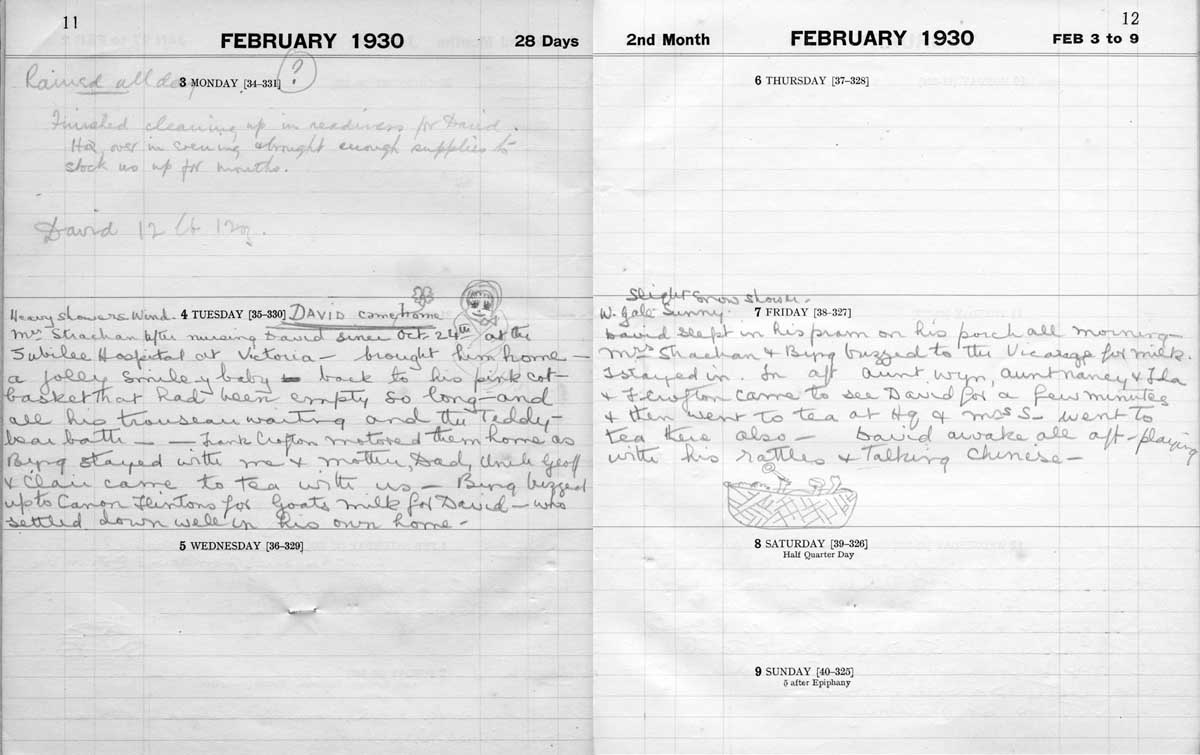 11
FEBRUARY 1930
28 Days
Rained all day 3 MONDAY [34–331] ?
Finished cleaning up in readiness for David.
over in evening & brought enough supplies to
stock us up for months.
David 12 lb 12oz.
Heavy showers Wind. 4 TUESDAY [35–330] DAVID came home
Mrs Strachan after nursing David since Oct. 24th at the
Jubilee Hospital at Victoria — brought him home —
a jolly smiley baby — back to his pink cot-
basket that had been empty so long — and
all his trouseau waiting and the Teddy-
bear bath — — Frank Crofton motored them home as
Byng stayed with me & mother, Dad, Uncle Geoff
& Clair came to tea with us — Byng buzzed
up to Canon Flintons for Goats milk for David — who
settled down well in his own home —
5 WEDNESDAY [36–329]
12
2nd Month
FEBRUARY 1930
FEB 3 to 9
6 THURSDAY [37–328]
Slight snow shower.
W. gale Sunny. 7 FRIDAY [38–327]
David slept in his pram on his porch all morning —
Mrs Strachan & Byng buzzed to the Vicarage for milk.
I stayed in. In aft aunt Wyn, aunt nancy & Ida
& F Crofton came to see David for a few minutes
& then went to tea at Hq & Mrs S— went to
tea there also — David awake all aft — playing
with his rattles & Talking Chinese —
8 SATURDAY [39–326]
Half Quarter Day
9 SUNDAY [40–325]
5 after Epiphany